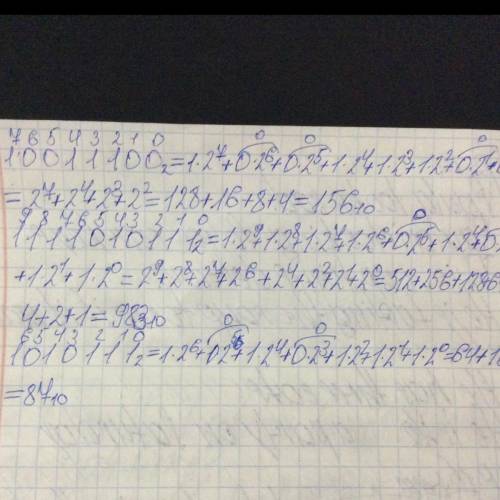 7 6 5 4 3 2 1 0
10011100₂=1·2⁷+0·2⁶+0·2⁵+1·2⁴+1·2³+1·2²+0·2¹+
=2⁷+2⁴+2³+2²=128+16+8+4=156₁₀
9 8 7 6 5 4 3 2 1 0
1111010111₂=1·2⁹+1·2⁸+1·2⁷+1·2⁶+0·2⁵+1·2⁴+0·2
+1·2¹+1·2⁰=2⁹+2⁸+2⁷+2⁶+2⁴+2²+2¹+2⁰=512+256+128+6
4+2+1=983₁₀
6 5 4 3 2 1 0
1010111₂=1·2⁶+0·2⁵+1·2⁴+0·2³+1·2²+1·2¹+1·2⁰=64+1
=87₁₀